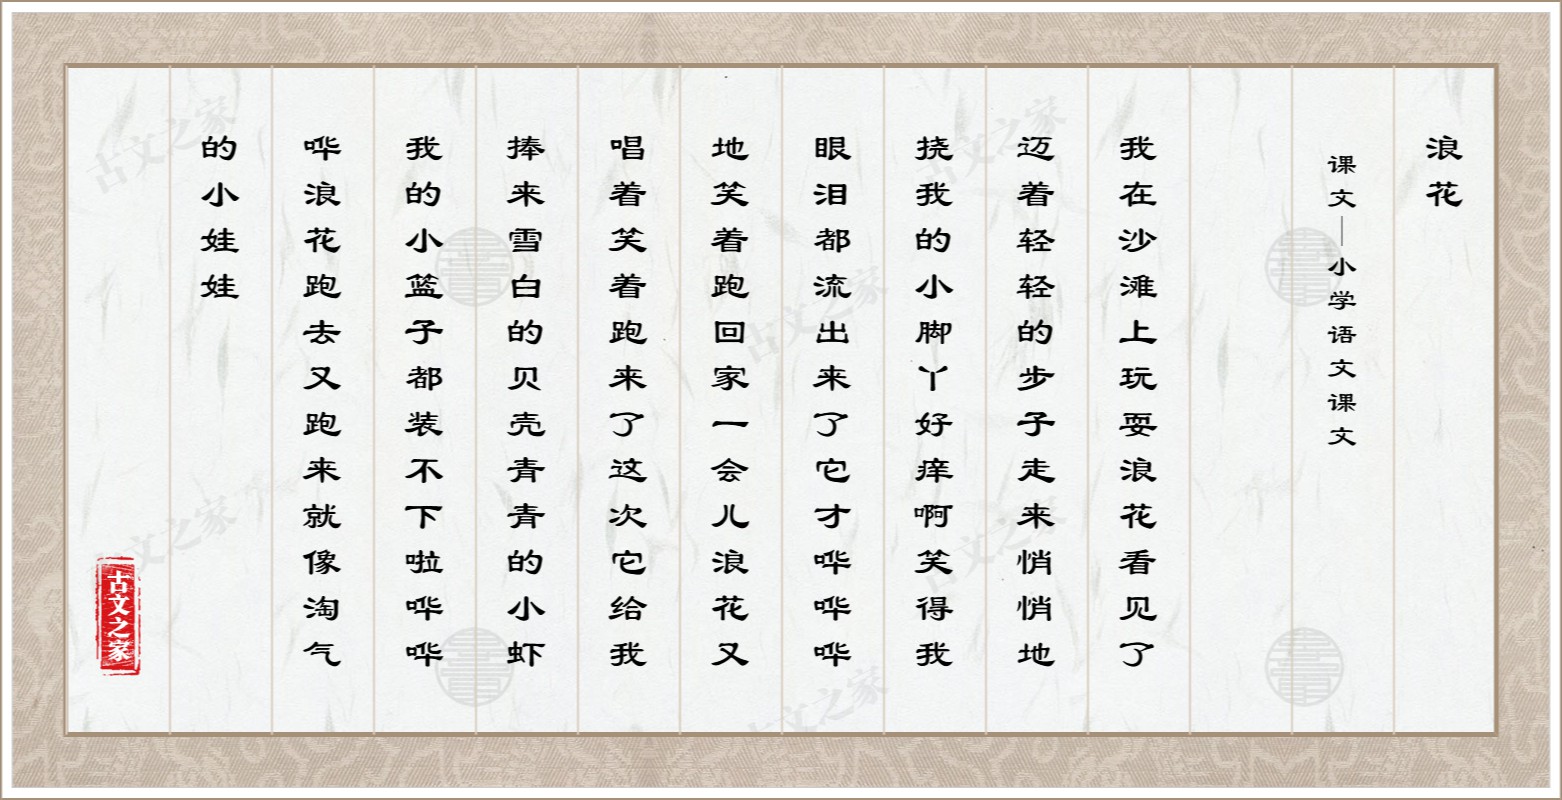 浪花
课文—小学语文课文
我在沙滩上玩耍浪花看见了
迈着轻轻的步子走来悄悄地
挠我的小脚丫好痒啊笑得我
眼泪都流出来了它才哗哗哗
地笑着跑回家一会儿浪花又
唱着笑着跑来了这次它给我
捧来雪白的贝壳青青的小虾
我的小篮子都装不下啦哗哗
哗浪花跑去又跑来就像淘气
的小娃娃
古文之家